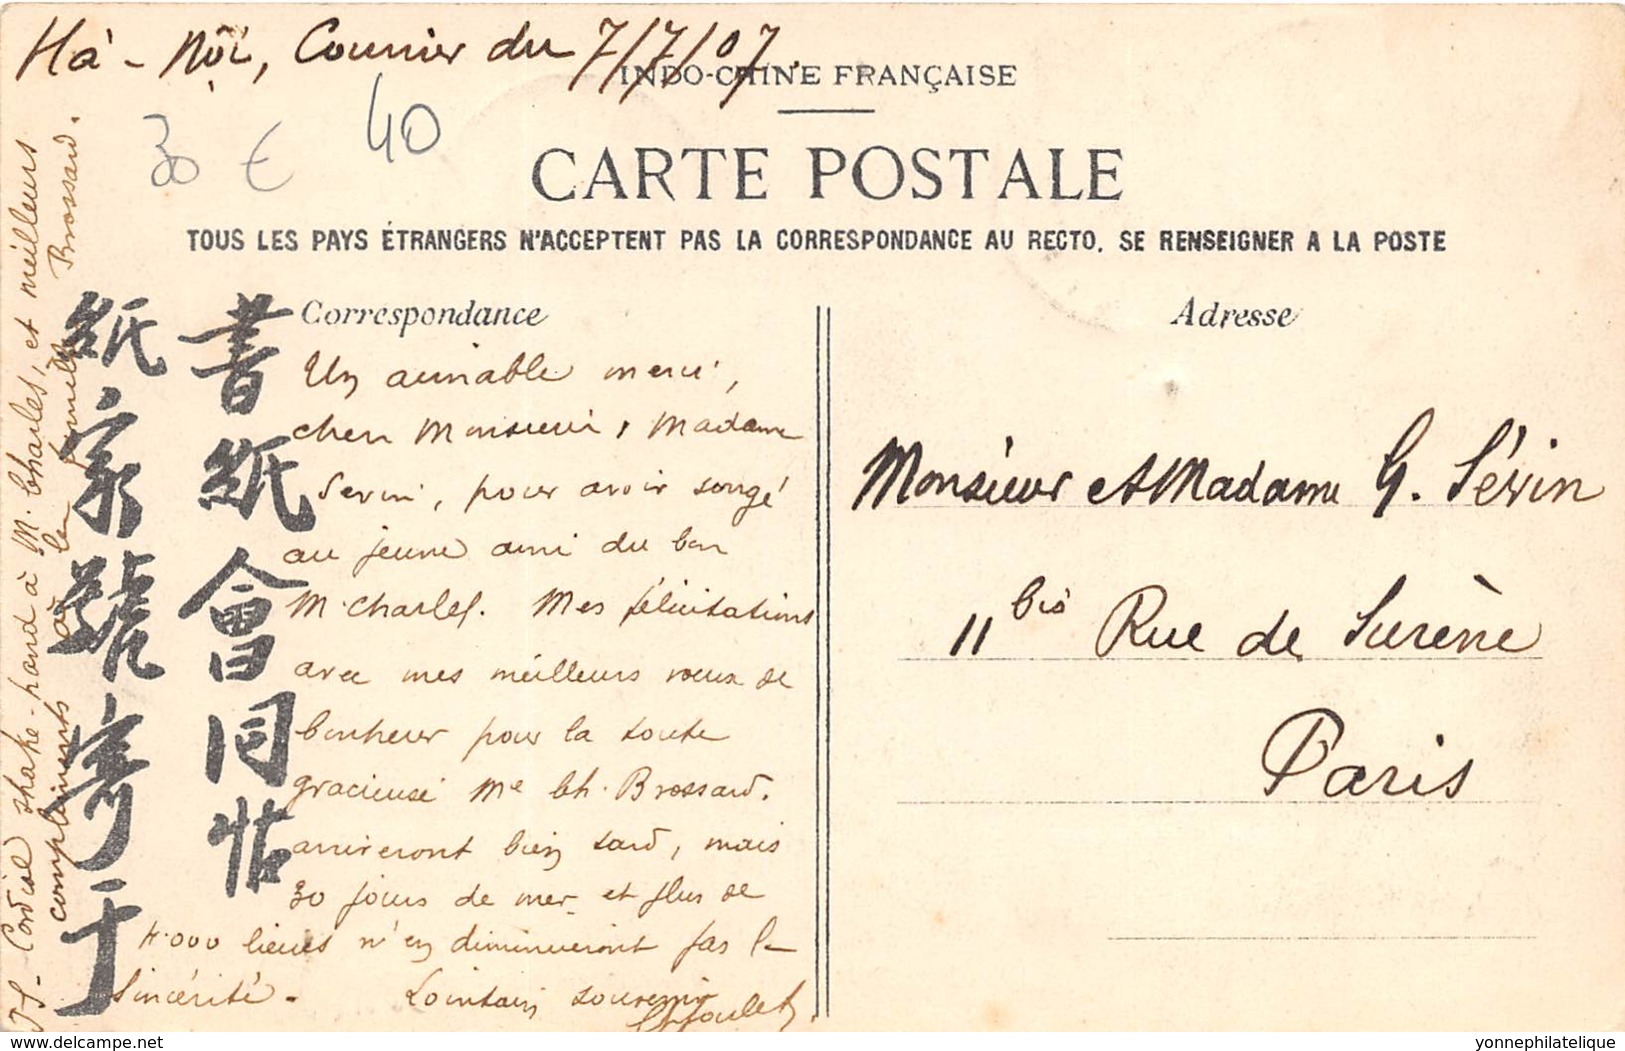 Hà-Nội, Courrier du 7/7/07.
INDO-CHINE FRANÇAISE
30 €
40
CARTE POSTALE
TOUS LES PAYS ÉTRANGERS N'ACCEPTENT PAS LA CORRESPONDANCE AU RECTO. SE RENSEIGNER A LA POSTE
Correspondance
Un aimable merci,
cher Monsieur, Madame
Sevin, pour avoir songé
au jeune ami du bon
M. Charles. Mes félicitations
avec mes meilleurs vœux de
bonheur pour la toute
gracieuse Me Ch. Brossard.
arriveront bien tard, mais
30 jours de mer et plus de
4.000 lieues n'en diminueront pas la
sincérité. Lointain souvenir
PS - Cordial shake-hand à M. Charles, et meilleurs
compliments à la famille Brossard.
書紙會同帖
紙家號寄于
Adresse
Monsieur et Madame G. Sévin
11 bis Rue de Surène
Paris
delcampe.net
yonnephilatelique